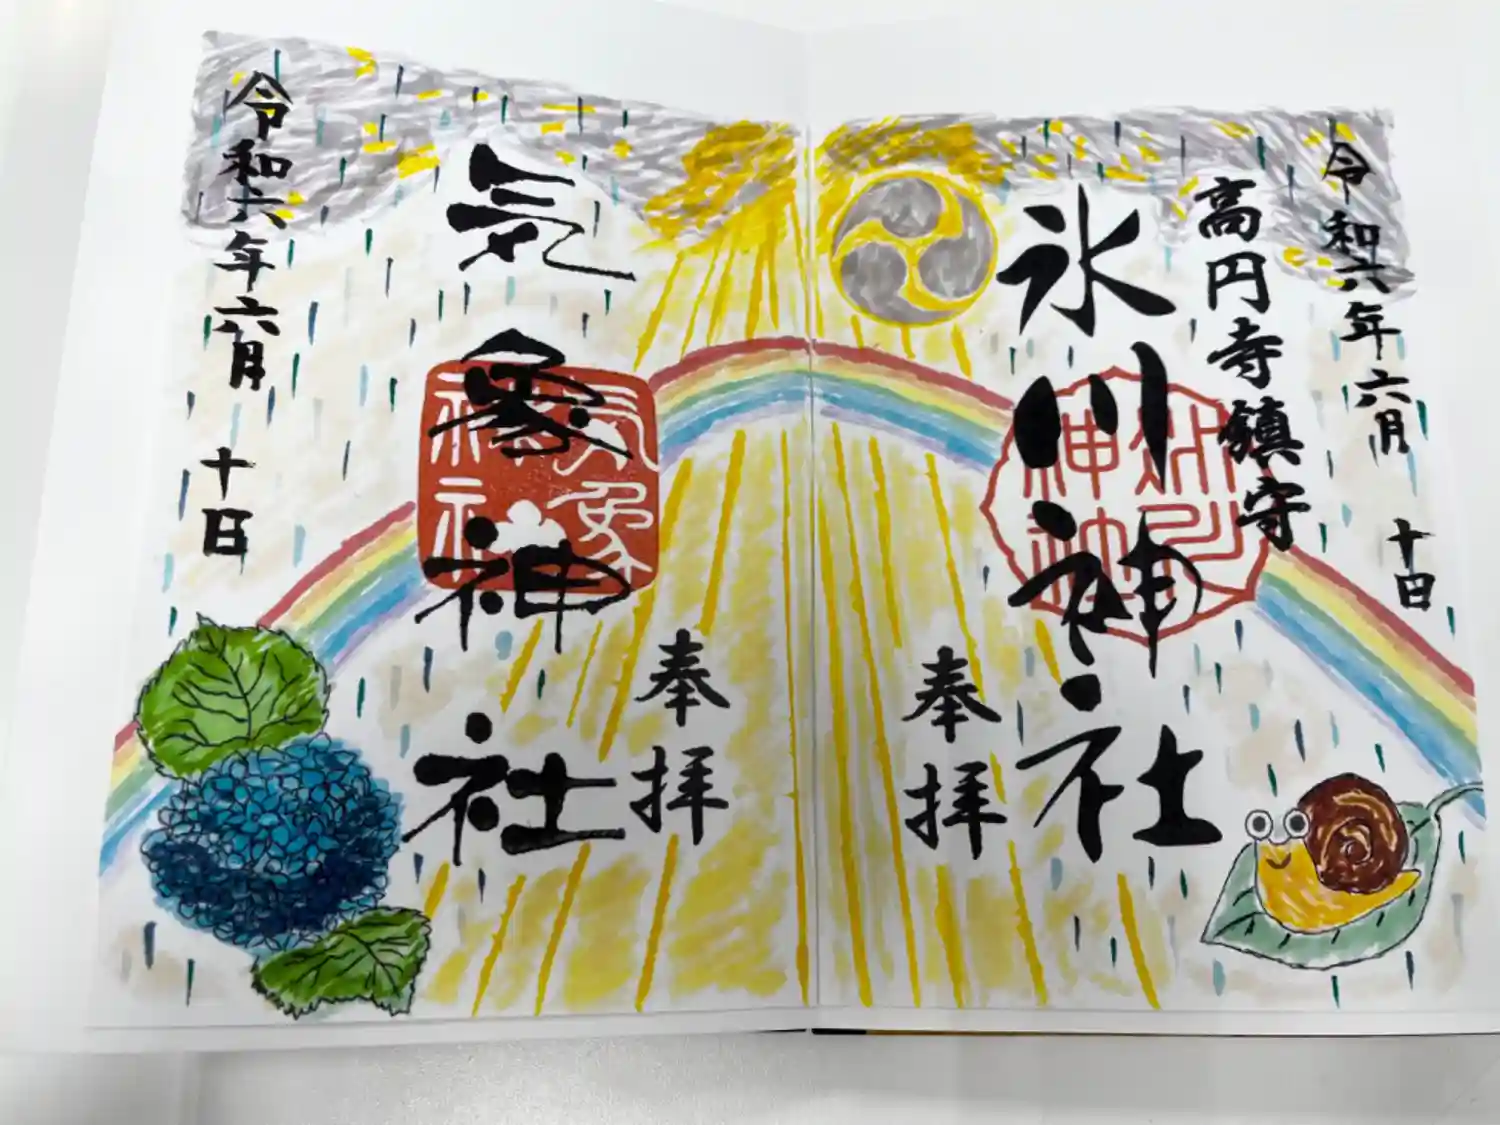 令和六年六月十日
高円寺鎮守
氷川神社
奉拝
奉拝
気象神社
令和六年六月十日
気象神社